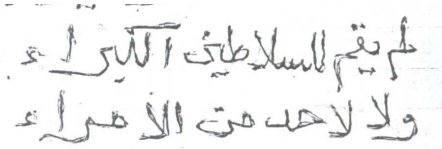 لم يقم للسلاطين الكبراء
ولا لاحد من الامراء